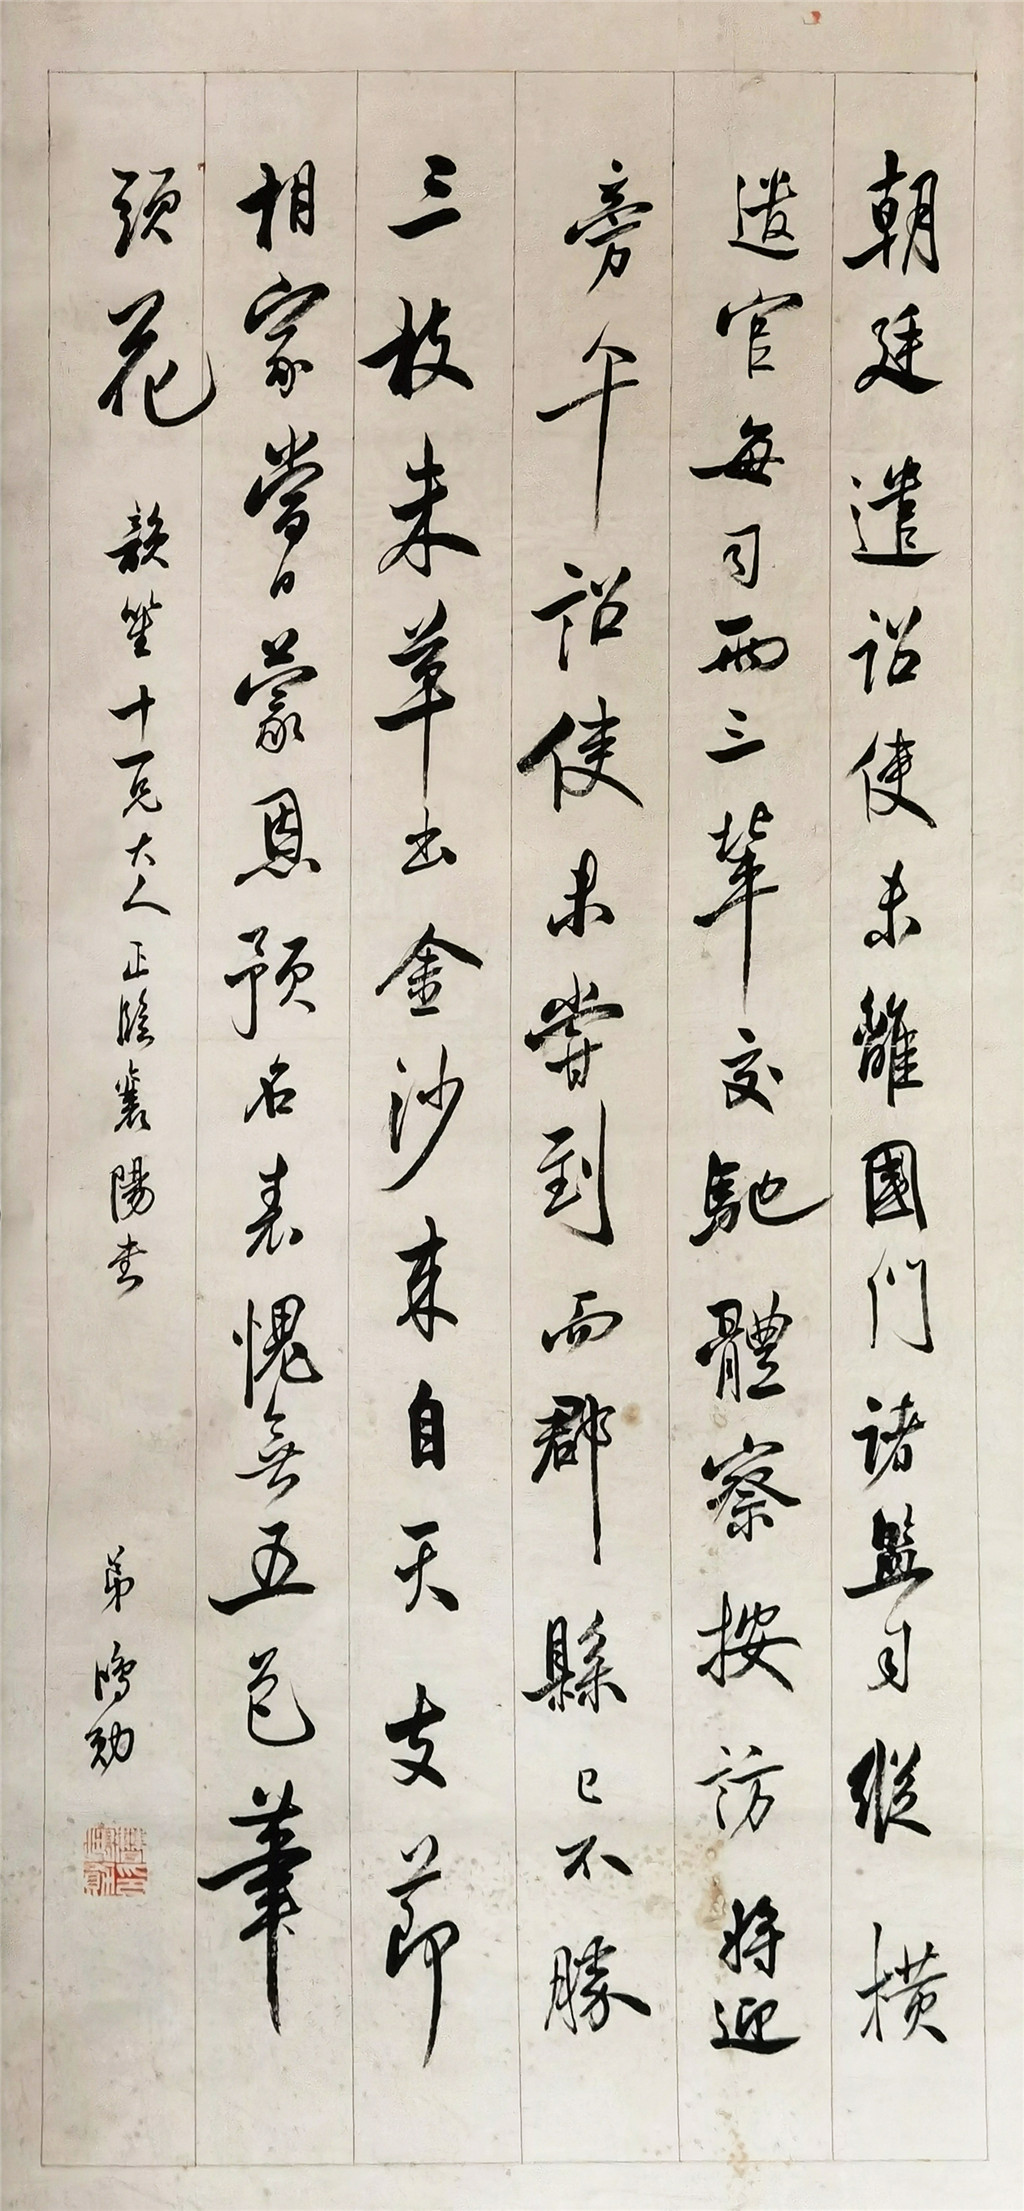 朝廷遣詔使未離國門諸監司縱橫
遣官每司兩三輩交馳體察按訪將迎
旁午詔使未嘗到而郡縣已不勝
三枝朱草出金沙來自天支節
相家當日蒙恩預名表愧無五色筆
頭花
韻笙十一兄大人正臨襄陽書
弟鴻勛